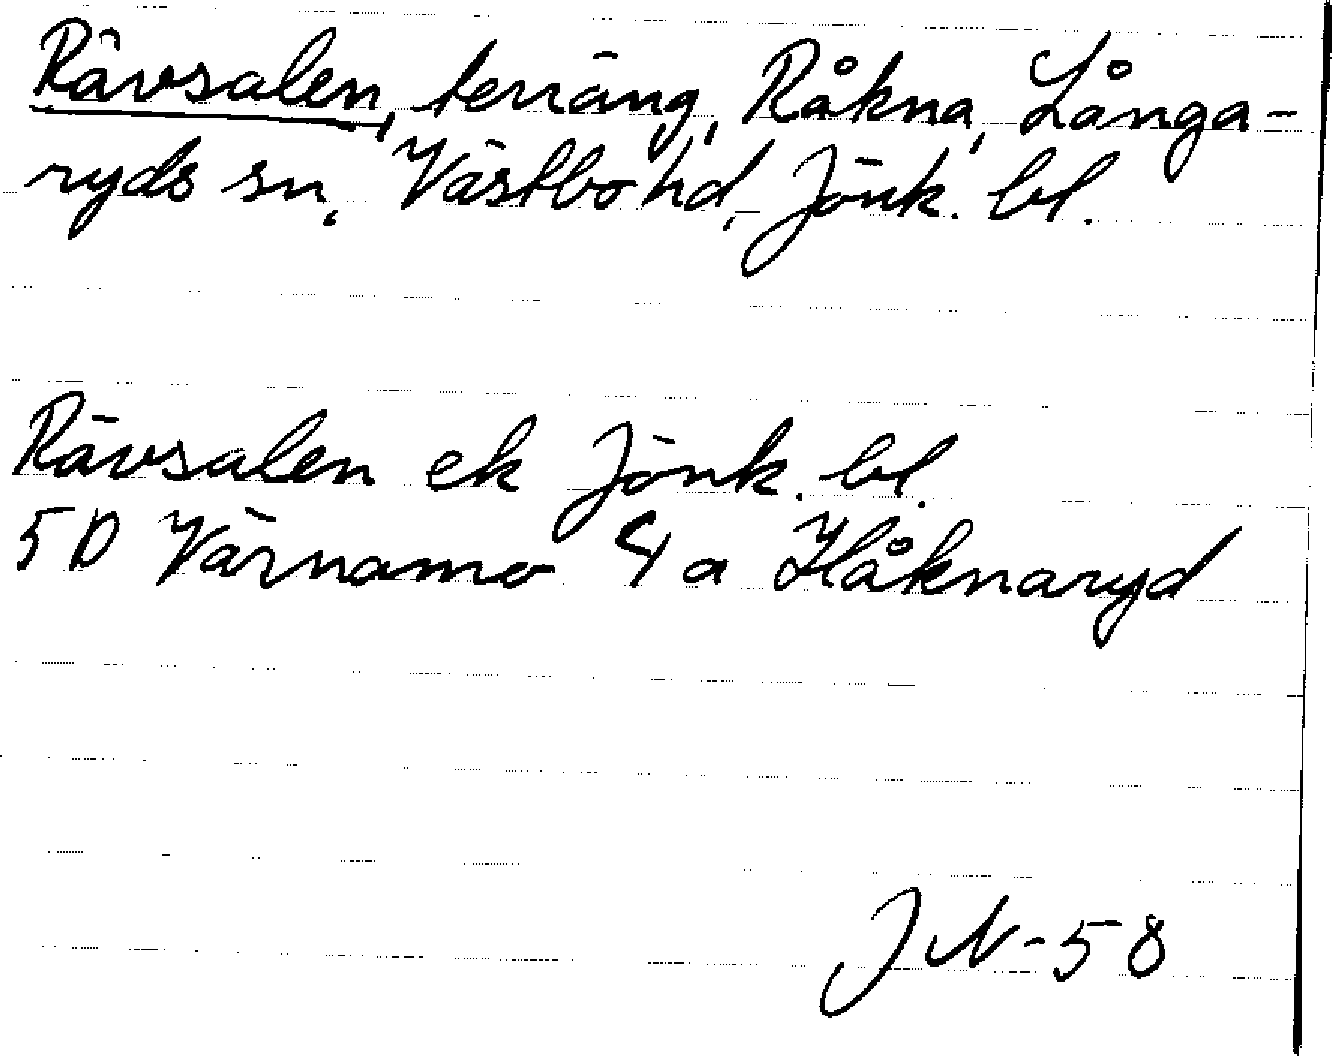 Rävsalen, terräng, Råkna, Långa-
ryds sn, Västbo hd, Jönk. bl.
Rävsalen ek Jönk. bl.
5D Värnamo 4 a Håknaryd
JN-58